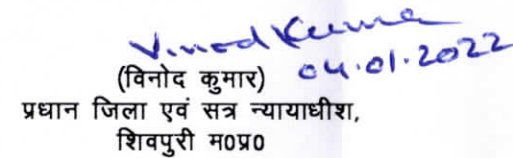 Vinod Kuma
04.01.2022
(विनोद कुमार)
प्रधान जिला एवं सत्र न्यायाधीश,
शिवपुरी म0प्र0